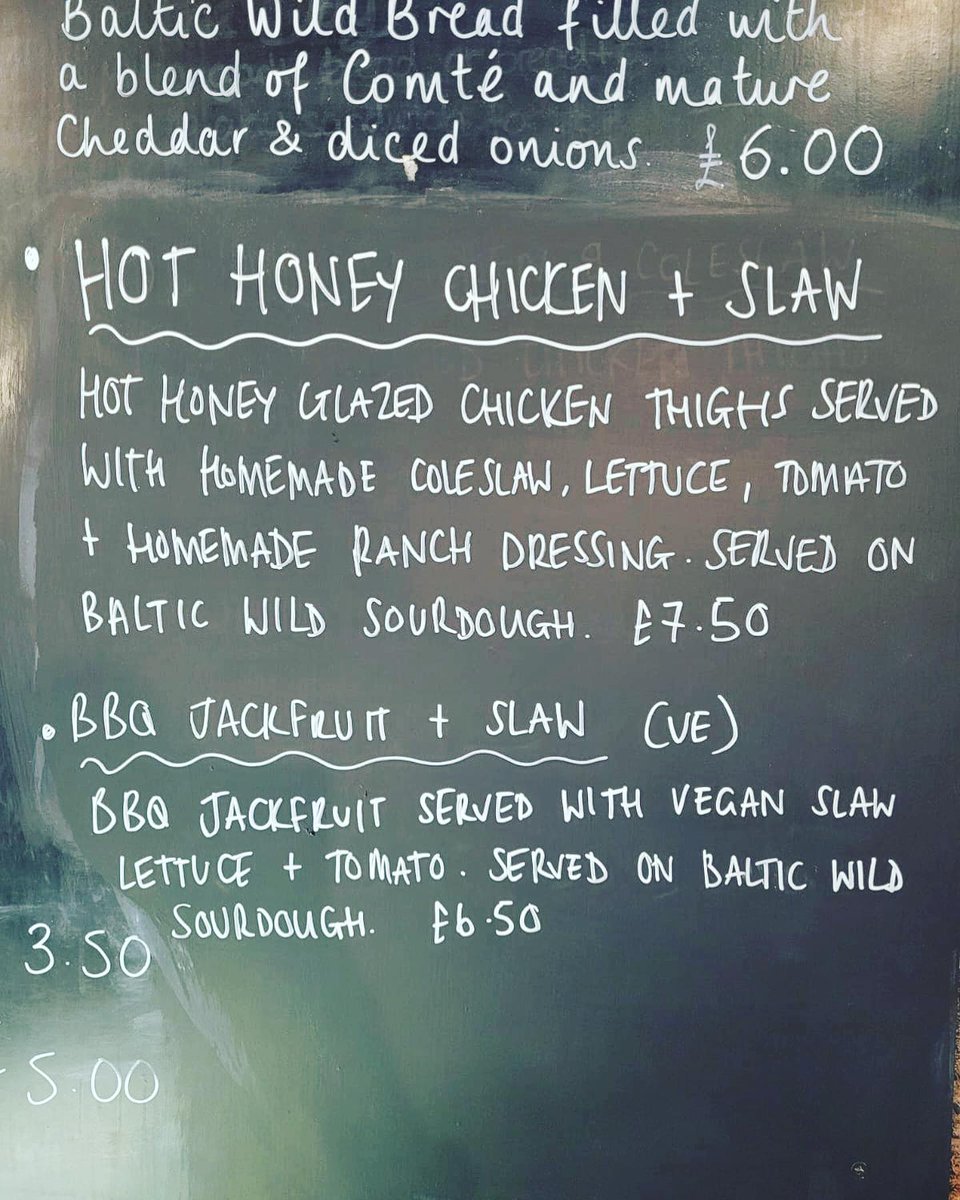 Baltic Wild Bread filled with
a blend of Comté and mature
Cheddar & diced onions. £6.00
• HOT HONEY CHICKEN + SLAW
HOT HONEY GLAZED CHICKEN THIGHS SERVED
WITH HOMEMADE COLESLAW, LETTUCE, TOMATO
+ HOMEMADE RANCH DRESSING. SERVED ON
BALTIC WILD SOURDOUGH. £7.50
• BBQ JACKFRUIT + SLAW (VE)
BBQ JACKFRUIT SERVED WITH VEGAN SLAW
LETTUCE + TOMATO. SERVED ON BALTIC WILD
SOURDOUGH. £6.50
3.50
5.00